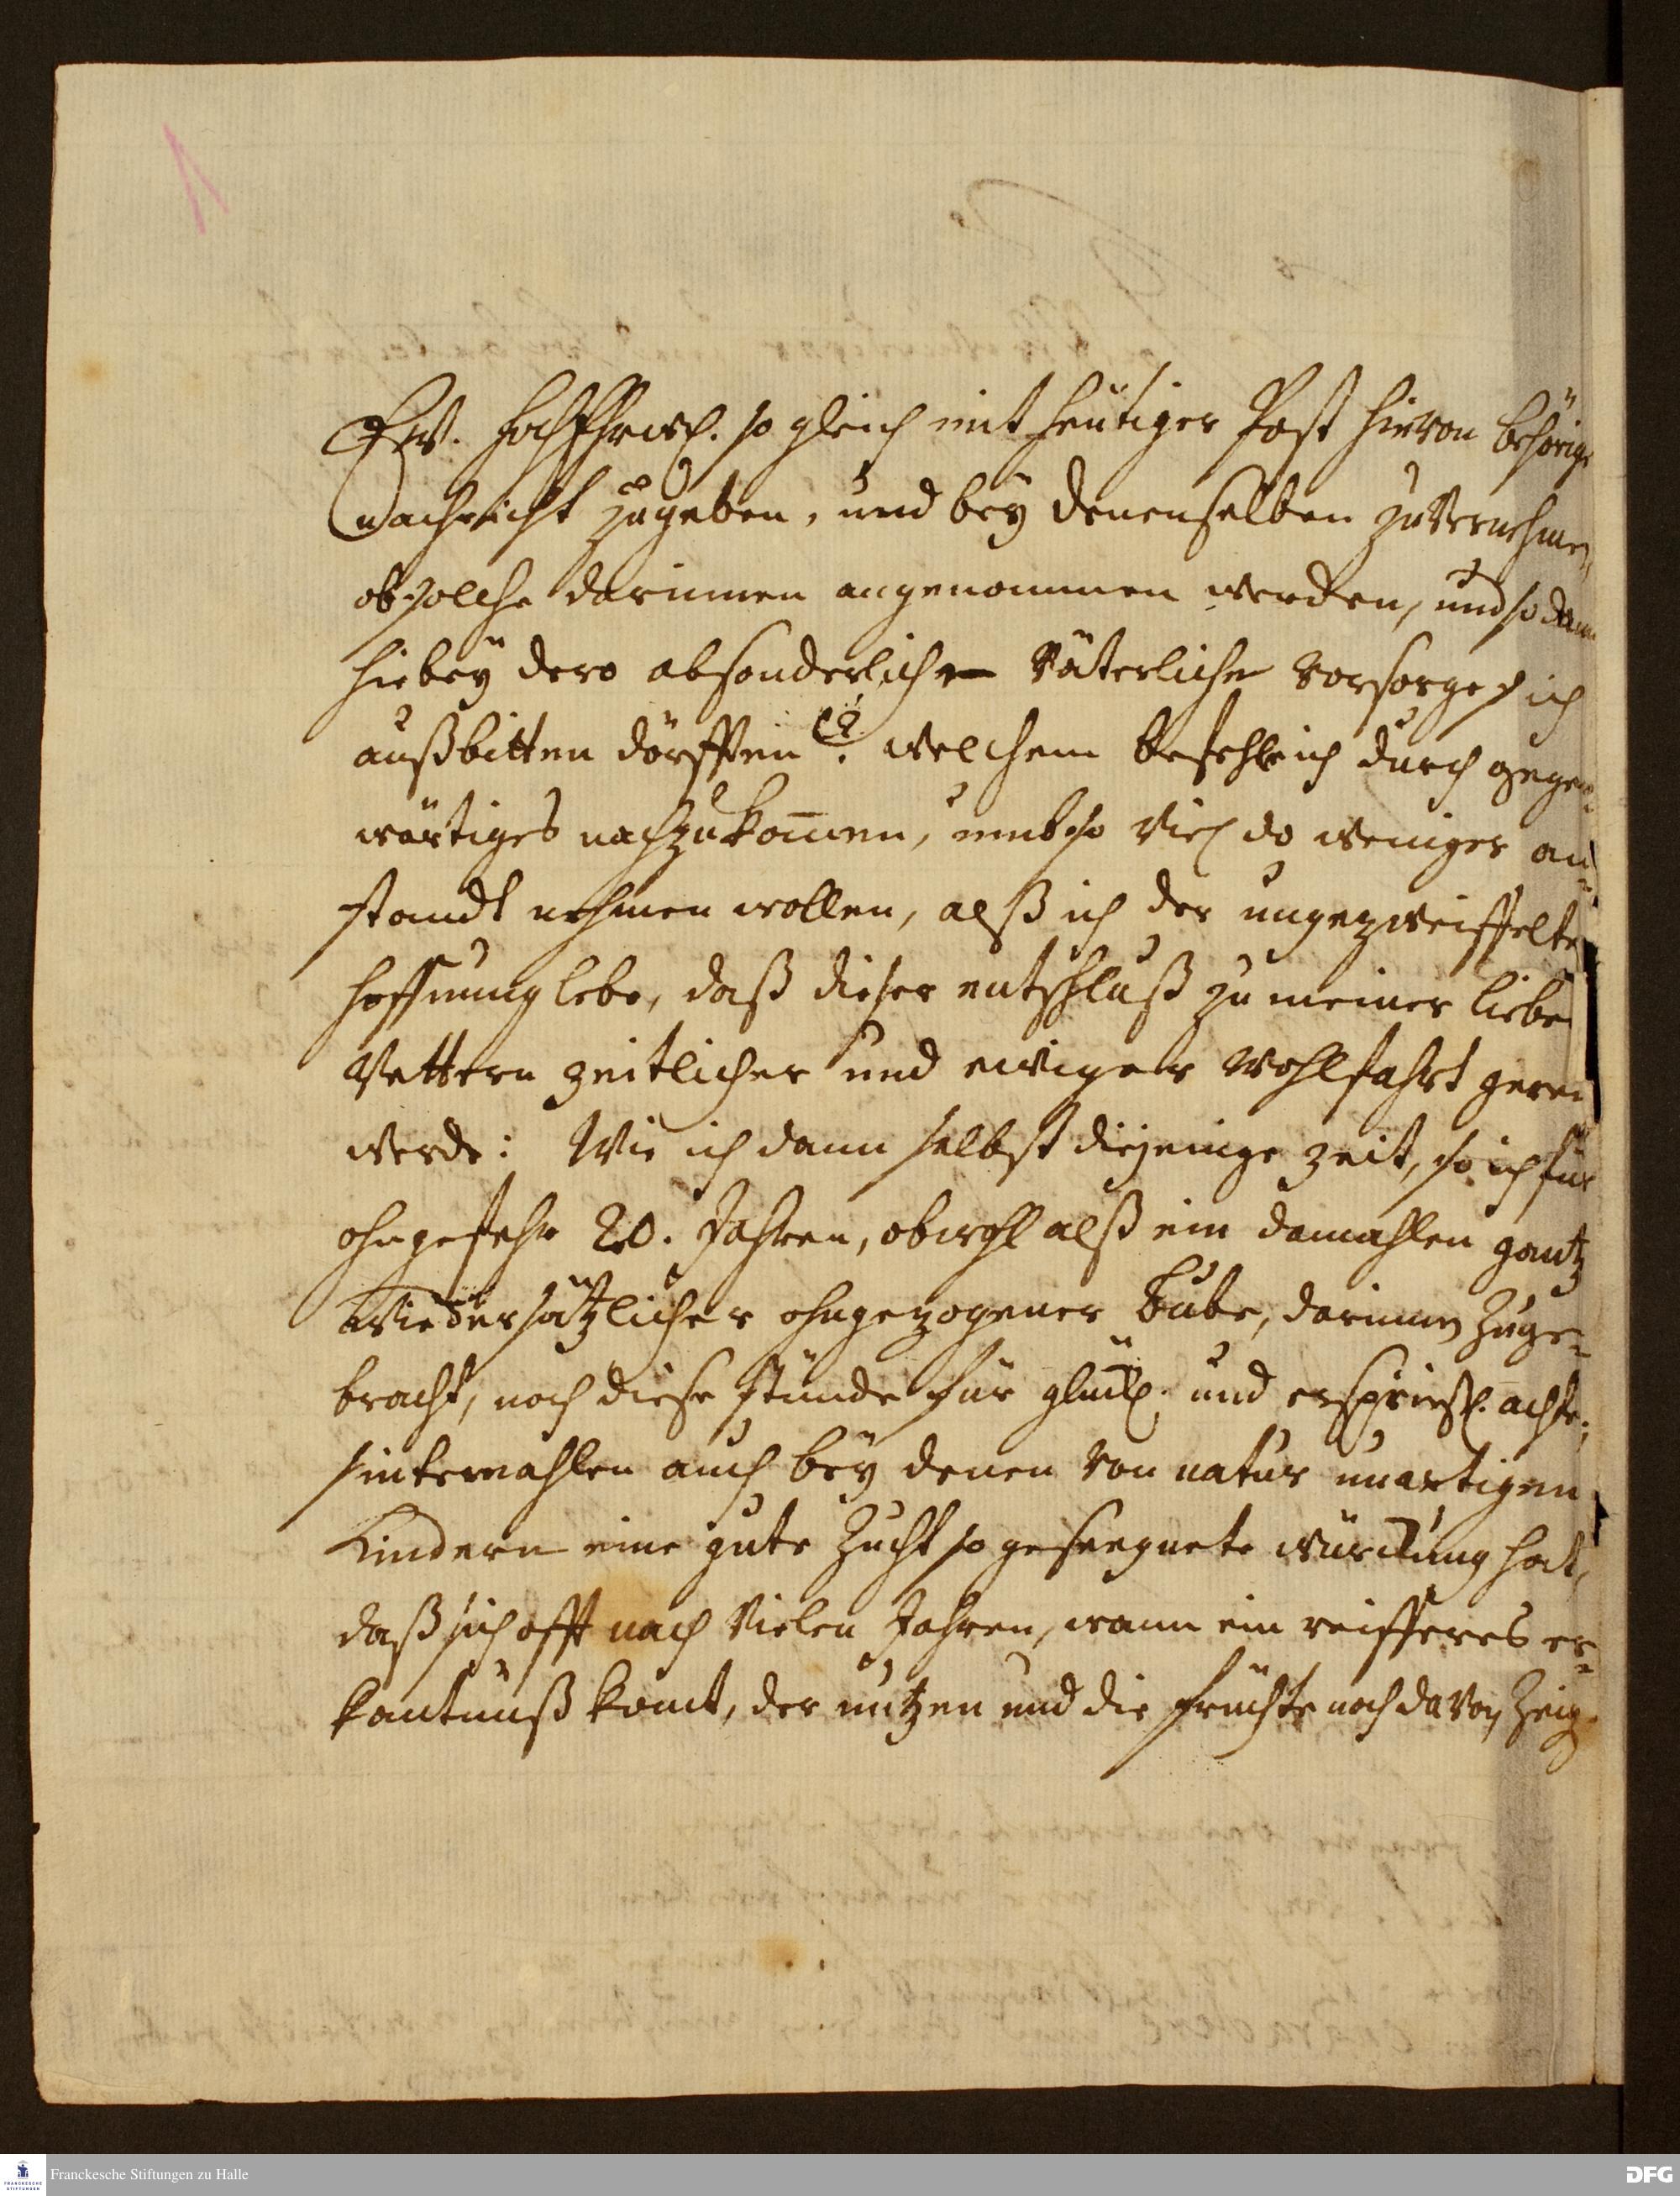 Ew. HochEhrwl. so gleich mit heutiger Post hievon behörige
Nachricht zugeben, und bey denenselben zuvernehmen,
ob solche darinnen angenommen werden, und so dann
hiebey dero absonderliche Väterliche Vorsorge sich
außbitten dörfften? welchem befehl ich durch gegen-
wärtiges nachzukom̅en, umb so viel do weniger an-
standt nehmen wollen, alß ich der ungezweiffelten
hoffnung lebe, daß dieser entschluß zu meiner lieben
Vettern zeitlicher und ewiger wohlfahrt gerei
werde: Wie ich dann selbst diejenige zeit, so ich für
ohngefehr 20. Jahren, obwohl alß ein damahlen gantz
wiedersätzlicher ohngezogener Bube, darinnen zuge-
bracht, noch diese stunde für glückl. und ersprießl. achte;
sintemahlen auch bey denen von natur unartigen
Kindern eine gute Zucht so geseegnete würckung hat,
daß sich offt nach vielen Jahren, wann ein reifferes er-
kantnuß komt, der nutzen und die früchte noch davon zeig
Franckesche Stiftungen zu Halle
FRANCKESCHE STIFTUNGEN
DFG